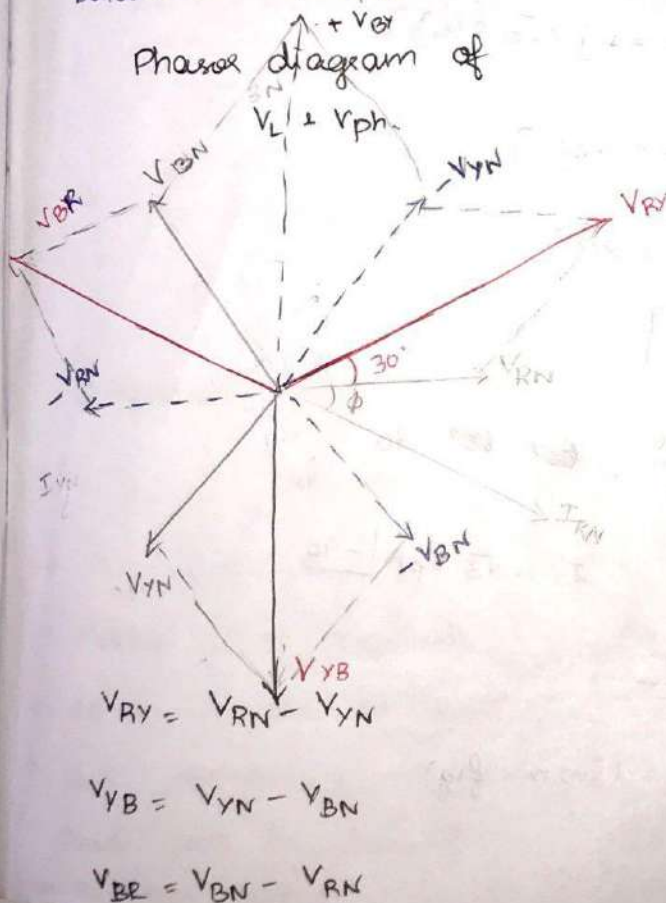 + VBY
Phasor diagram of
VL & Vph.
VBN
-VYN
VBR
VRY
30°
VRN
-VRN
φ
IYN
IRN
-VBN
VYN
VYB
VRY = VRN - VYN
VYB = VYN - VBN
VBR = VBN - VRN